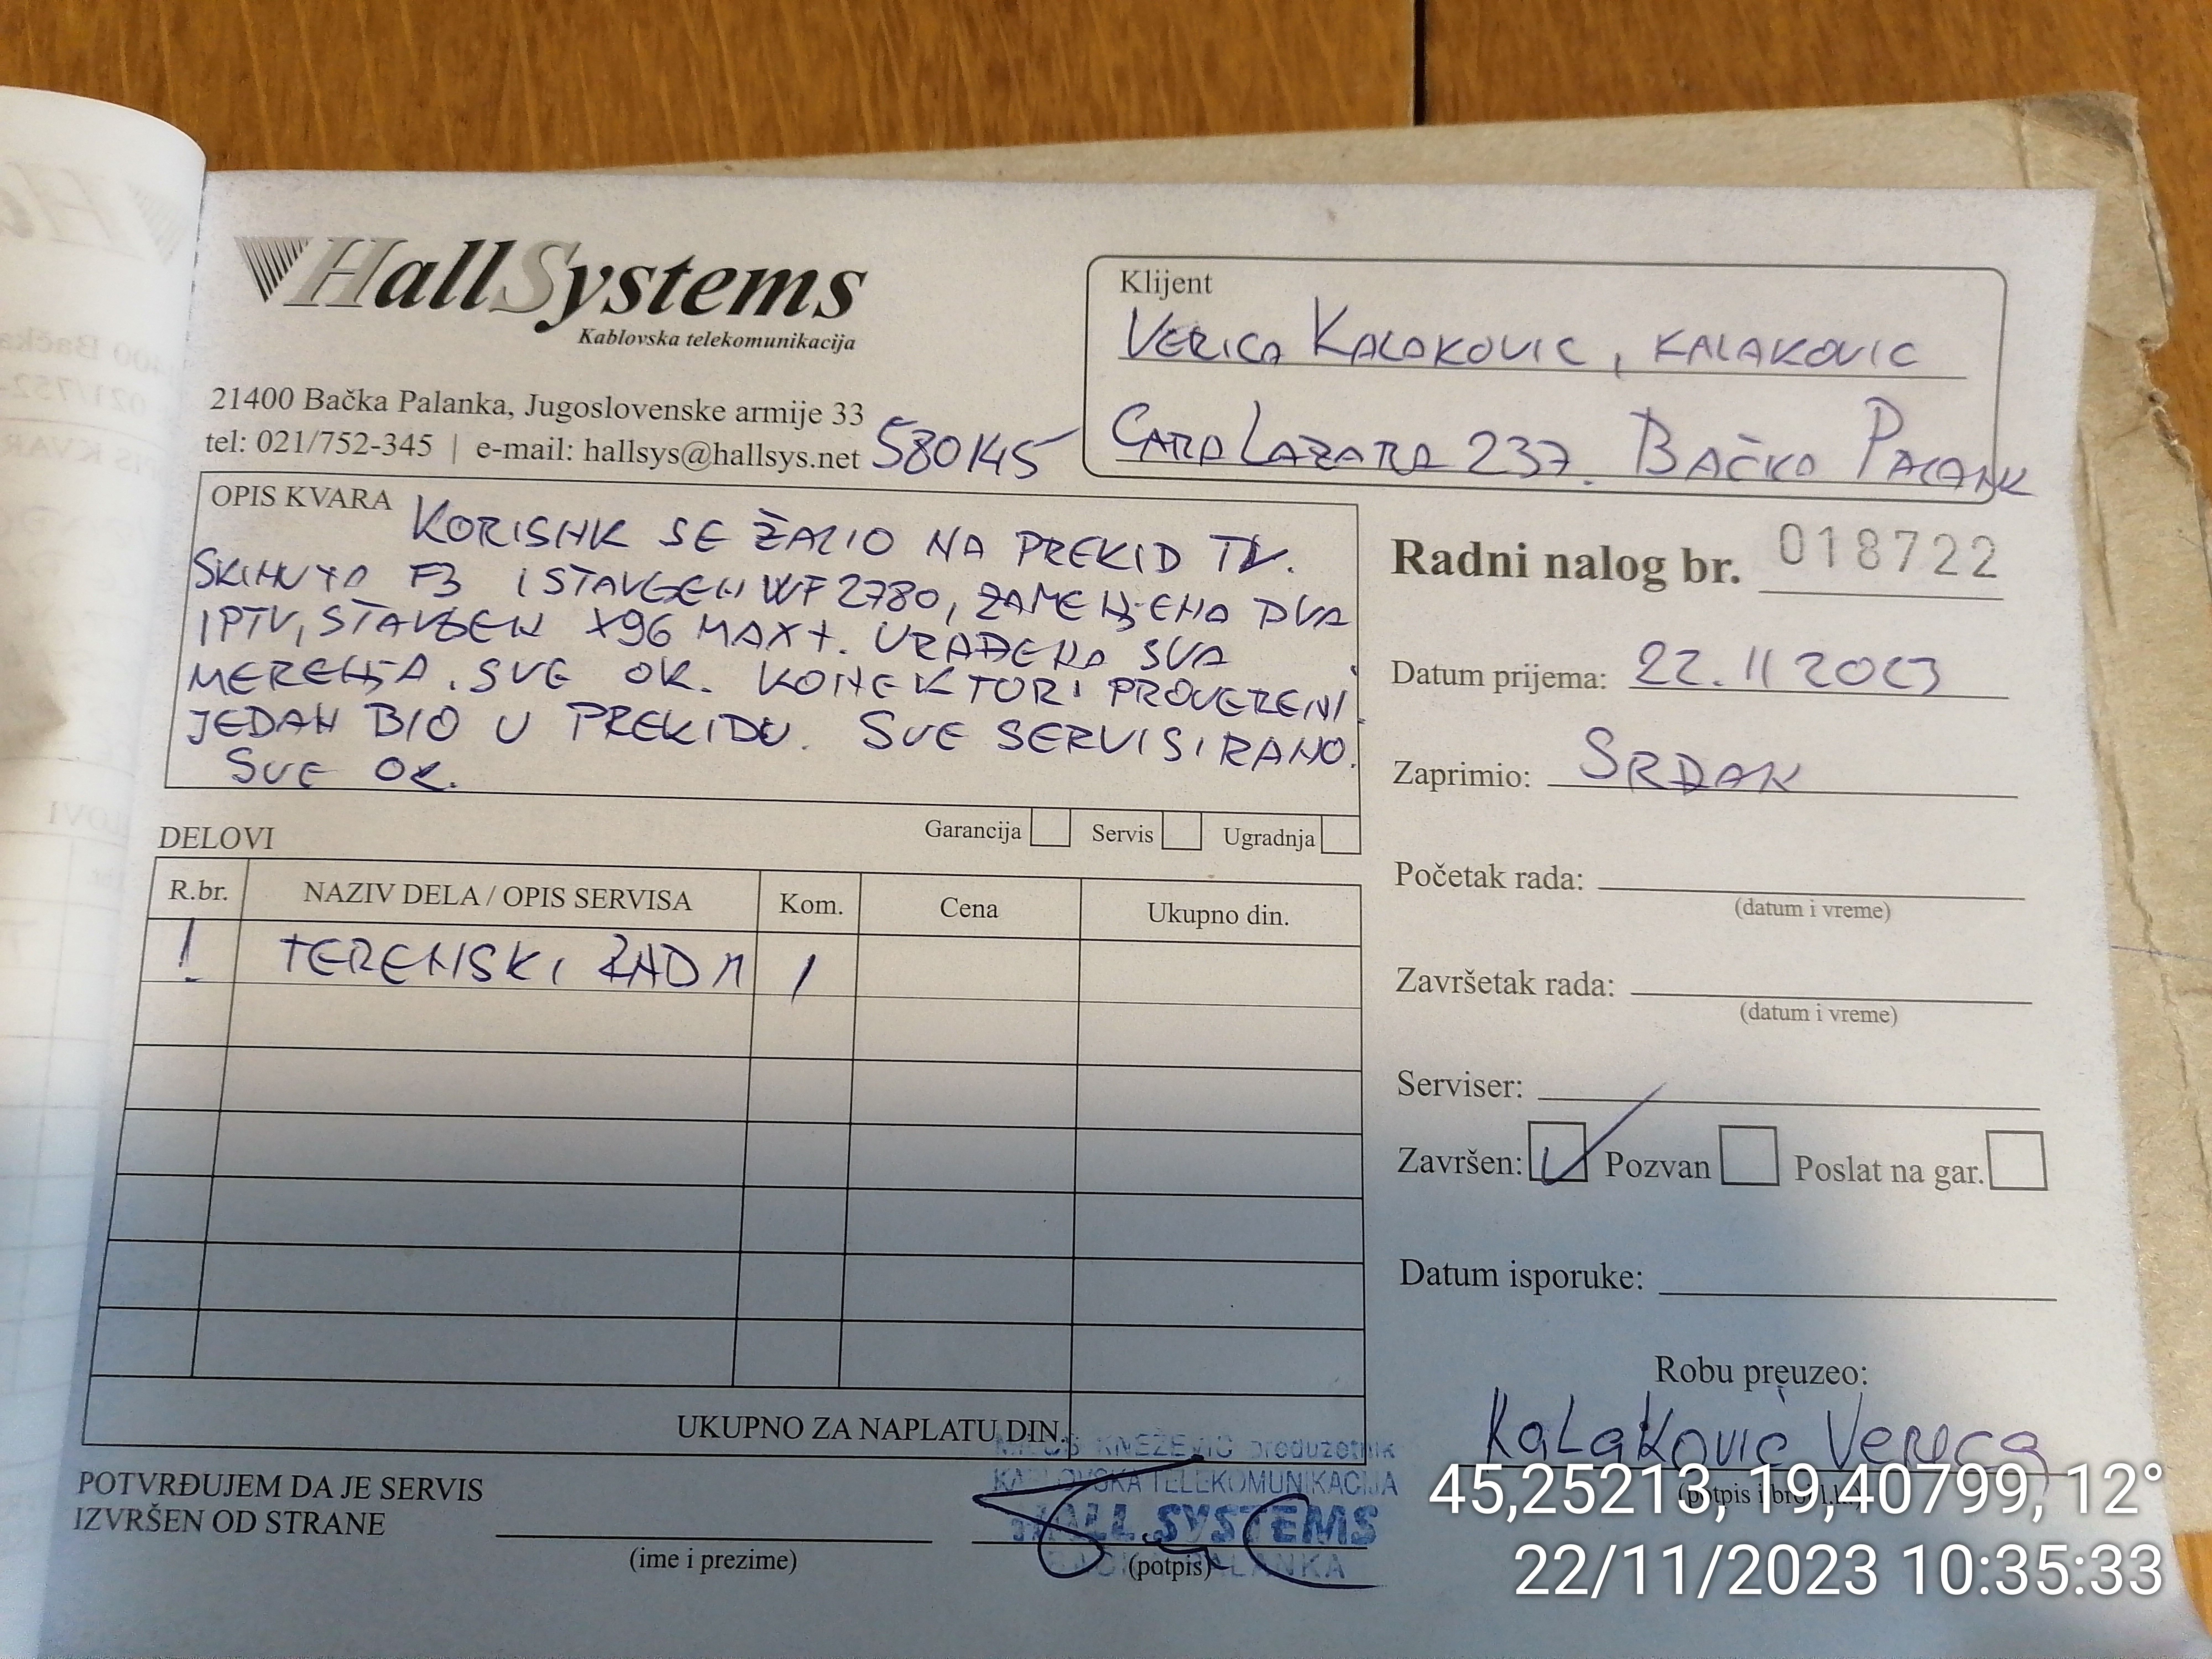 HallSystems
Kablovska telekomunikacija
21400 Bačka Palanka, Jugoslovenske armije 33
tel: 021/752-345 | e-mail: hallsys@hallsys.net
580145
Klijent
VERICA KALAKOVIC, KALAKOVIC
CARA LAZARA 237. BAČKA PALANK
OPIS KVARA
KORISNIK SE ŽALIO NA PREKID TV.
SKINUTA F3 I STAVLJEN WF2780, ZAMENJENA DVA
IPTV, STAVLJEN X96 MAX+. URAĐENA SVA
MERENJA. SVE OK. KONEKTORI PROVERENI.
JEDAN BIO U PREKIDU. SVE SERVISIRANO.
SVE OK.
Garancija Servis Ugradnja
Radni nalog br. 018722
Datum prijema: 22.11 2023
Zaprimio: SRĐAN
Početak rada:
(datum i vreme)
Završetak rada:
(datum i vreme)
Serviser:
Završen: Pozvan Poslat na gar.
Datum isporuke:
Robu preuzeo:
Kalaković Verica
DELOVI
R.br. NAZIV DELA / OPIS SERVISA Kom. Cena Ukupno din.
1. TERENSKI RAD 1
UKUPNO ZA NAPLATU DIN.
POTVRĐUJEM DA JE SERVIS
IZVRŠEN OD STRANE
(ime i prezime)
(potpis)
KNEŽEVIĆ preduzetnik
KABLOVSKA TELEKOMUNIKACIJA
HALL SYSTEMS
PALANKA
45,25213, 19,40799, 12°
22/11/2023 10:35:33